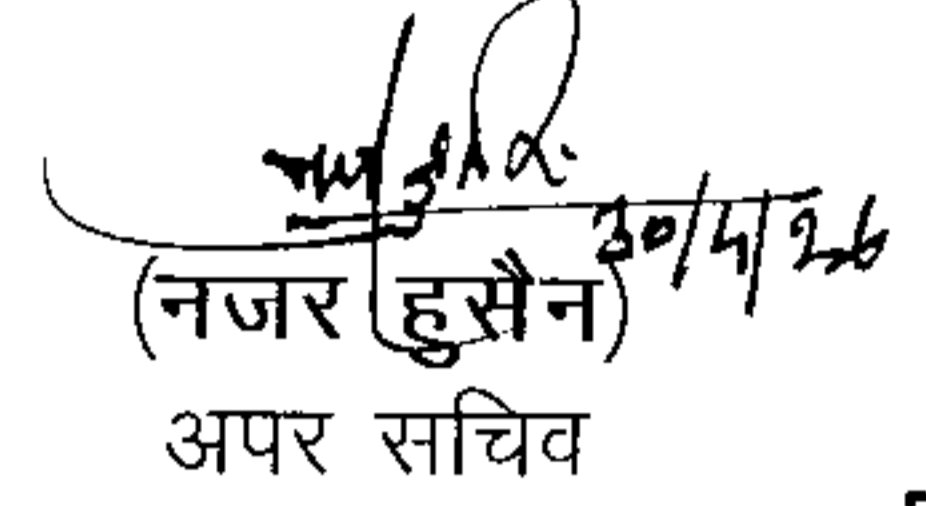 30/4/26
(नजर हुसैन)
अपर सचिव